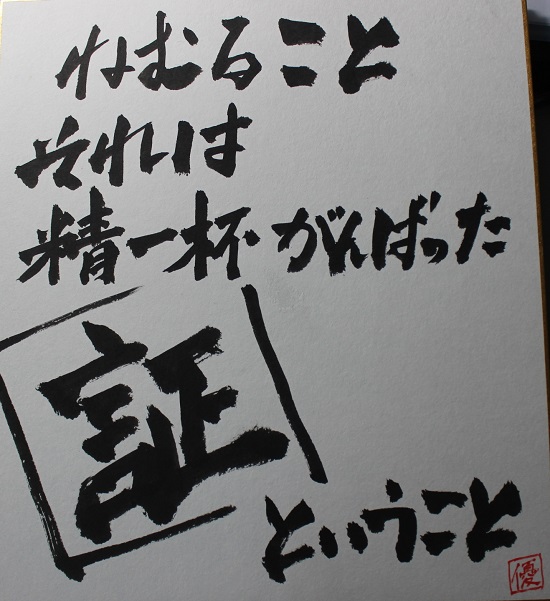 ねむること
それは
精一杯がんばった
証
ということ
優